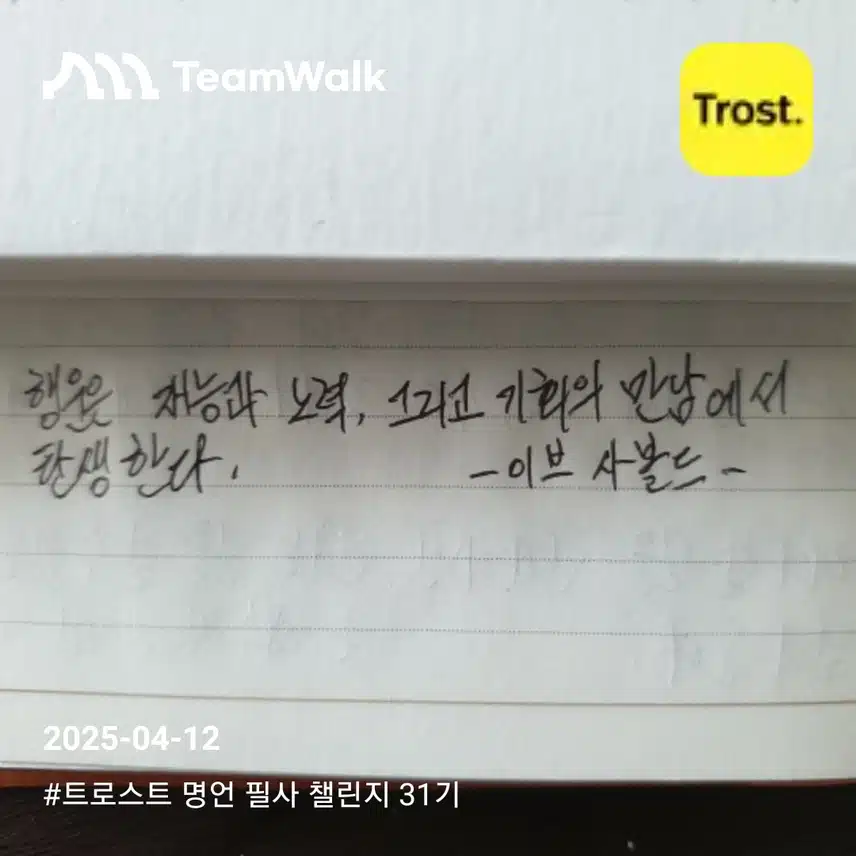 TeamWalk
Trost.
행운은 재능과 노력, 그리고 기회의 만남에서
탄생한다.
-이브 사볼드-
2025-04-12
#트로스트 명언 필사 챌린지 31기